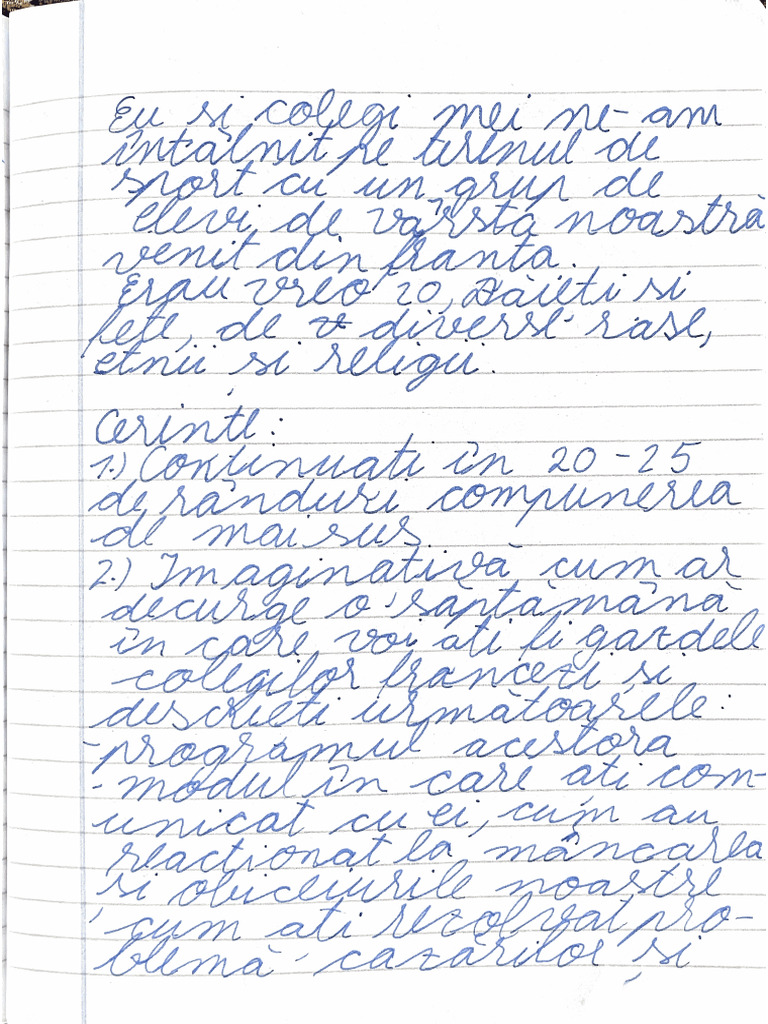 Eu si colegi mei ne-am
întâlnit pe terenul de
sport cu un grup de
elevi, de vârsta noastră
venit din franta.
Erau vreo 20, Băieti si
fete, de diverse rase,
etnii și religii.
Cerinte:
1.) Continuati în 20-25
de rânduri compunerea
de mai sus
2.) Imaginativă cum ar
decurge o săptămână
în care voi ati fi gazdele
colegilor francezi si
descrieti următoarele:
-programul acestora
-modul în care ati com-
unicat cu ei, cum au
reactionat la mâncarea
si obiceiurile noastre
-cum ati rezolvat pro-
blemă cazărilor și